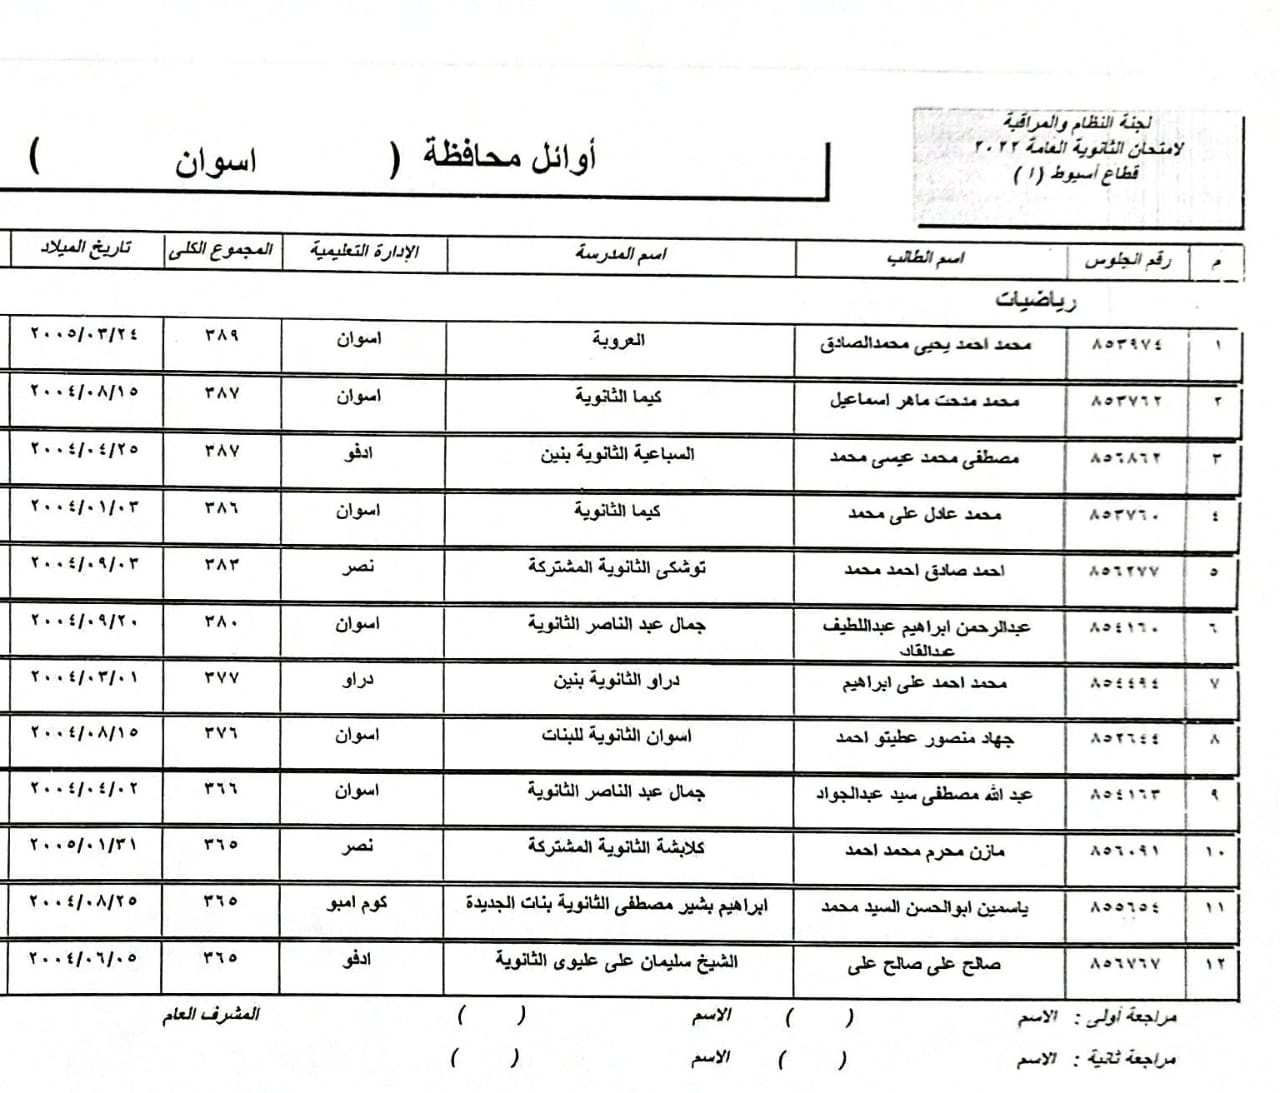 لجنة النظام والمراقبة
لامتحان الثانوية العامة ٢٠٢٢
قطاع أسيوط (١)
أوائل محافظة ( اسوان )
م رقم الجلوس اسم الطالب اسم المدرسة الإدارة التعليمية المجموع الكلى تاريخ الميلاد
رياضيات
١ ٨٥٣٩٧٤ محمد احمد يحيى محمدالصادق العروبة اسوان ٣٨٩ ٢٠٠٥/٠٣/٢٤
٢ ٨٥٣٧٦٢ محمد مدحت ماهر اسماعيل كيما الثانوية اسوان ٣٨٧ ٢٠٠٤/٠٨/١٥
٣ ٨٥٦٨٦٢ مصطفى محمد عيسى محمد السباعية الثانوية بنين ادفو ٣٨٧ ٢٠٠٤/٠٤/٢٥
٤ ٨٥٣٧٦٠ محمد عادل على محمد كيما الثانوية اسوان ٣٨٦ ٢٠٠٤/٠١/٠٣
٥ ٨٥٦٢٧٧ احمد صادق احمد محمد توشكى الثانوية المشتركة نصر ٣٨٣ ٢٠٠٤/٠٩/٠٣
٦ ٨٥٤١٦٠ عبدالرحمن ابراهيم عبداللطيف جمال عبد الناصر الثانوية اسوان ٣٨٠ ٢٠٠٤/٠٩/٢٠
عبدالقاد
٧ ٨٥٤٤٩٤ محمد احمد على ابراهيم دراو الثانوية بنين دراو ٣٧٧ ٢٠٠٤/٠٣/٠١
٨ ٨٥٢٦٤٤ جهاد منصور عطيتو احمد اسوان الثانوية للبنات اسوان ٣٧٦ ٢٠٠٤/٠٨/١٥
٩ ٨٥٤١٦٣ عبد الله مصطفى سيد عبدالجواد جمال عبد الناصر الثانوية اسوان ٣٦٦ ٢٠٠٤/٠٤/٠٢
١٠ ٨٥٦٠٩١ مازن محرم محمد احمد كلابشة الثانوية المشتركة نصر ٣٦٥ ٢٠٠٥/٠١/٣١
١١ ٨٥٥٦٥٤ ياسمين ابوالحسن السيد محمد ابراهيم بشير مصطفى الثانوية بنات الجديدة كوم امبو ٣٦٥ ٢٠٠٤/٠٨/٢٥
١٢ ٨٥٦٧٦٧ صالح على صالح على الشيخ سليمان على عليوى الثانوية ادفو ٣٦٥ ٢٠٠٤/٠٦/٠٥
مراجعة أولى : الاسم ( ) الاسم ( ) المشرف العام
مراجعة ثانية : الاسم ( ) الاسم ( )